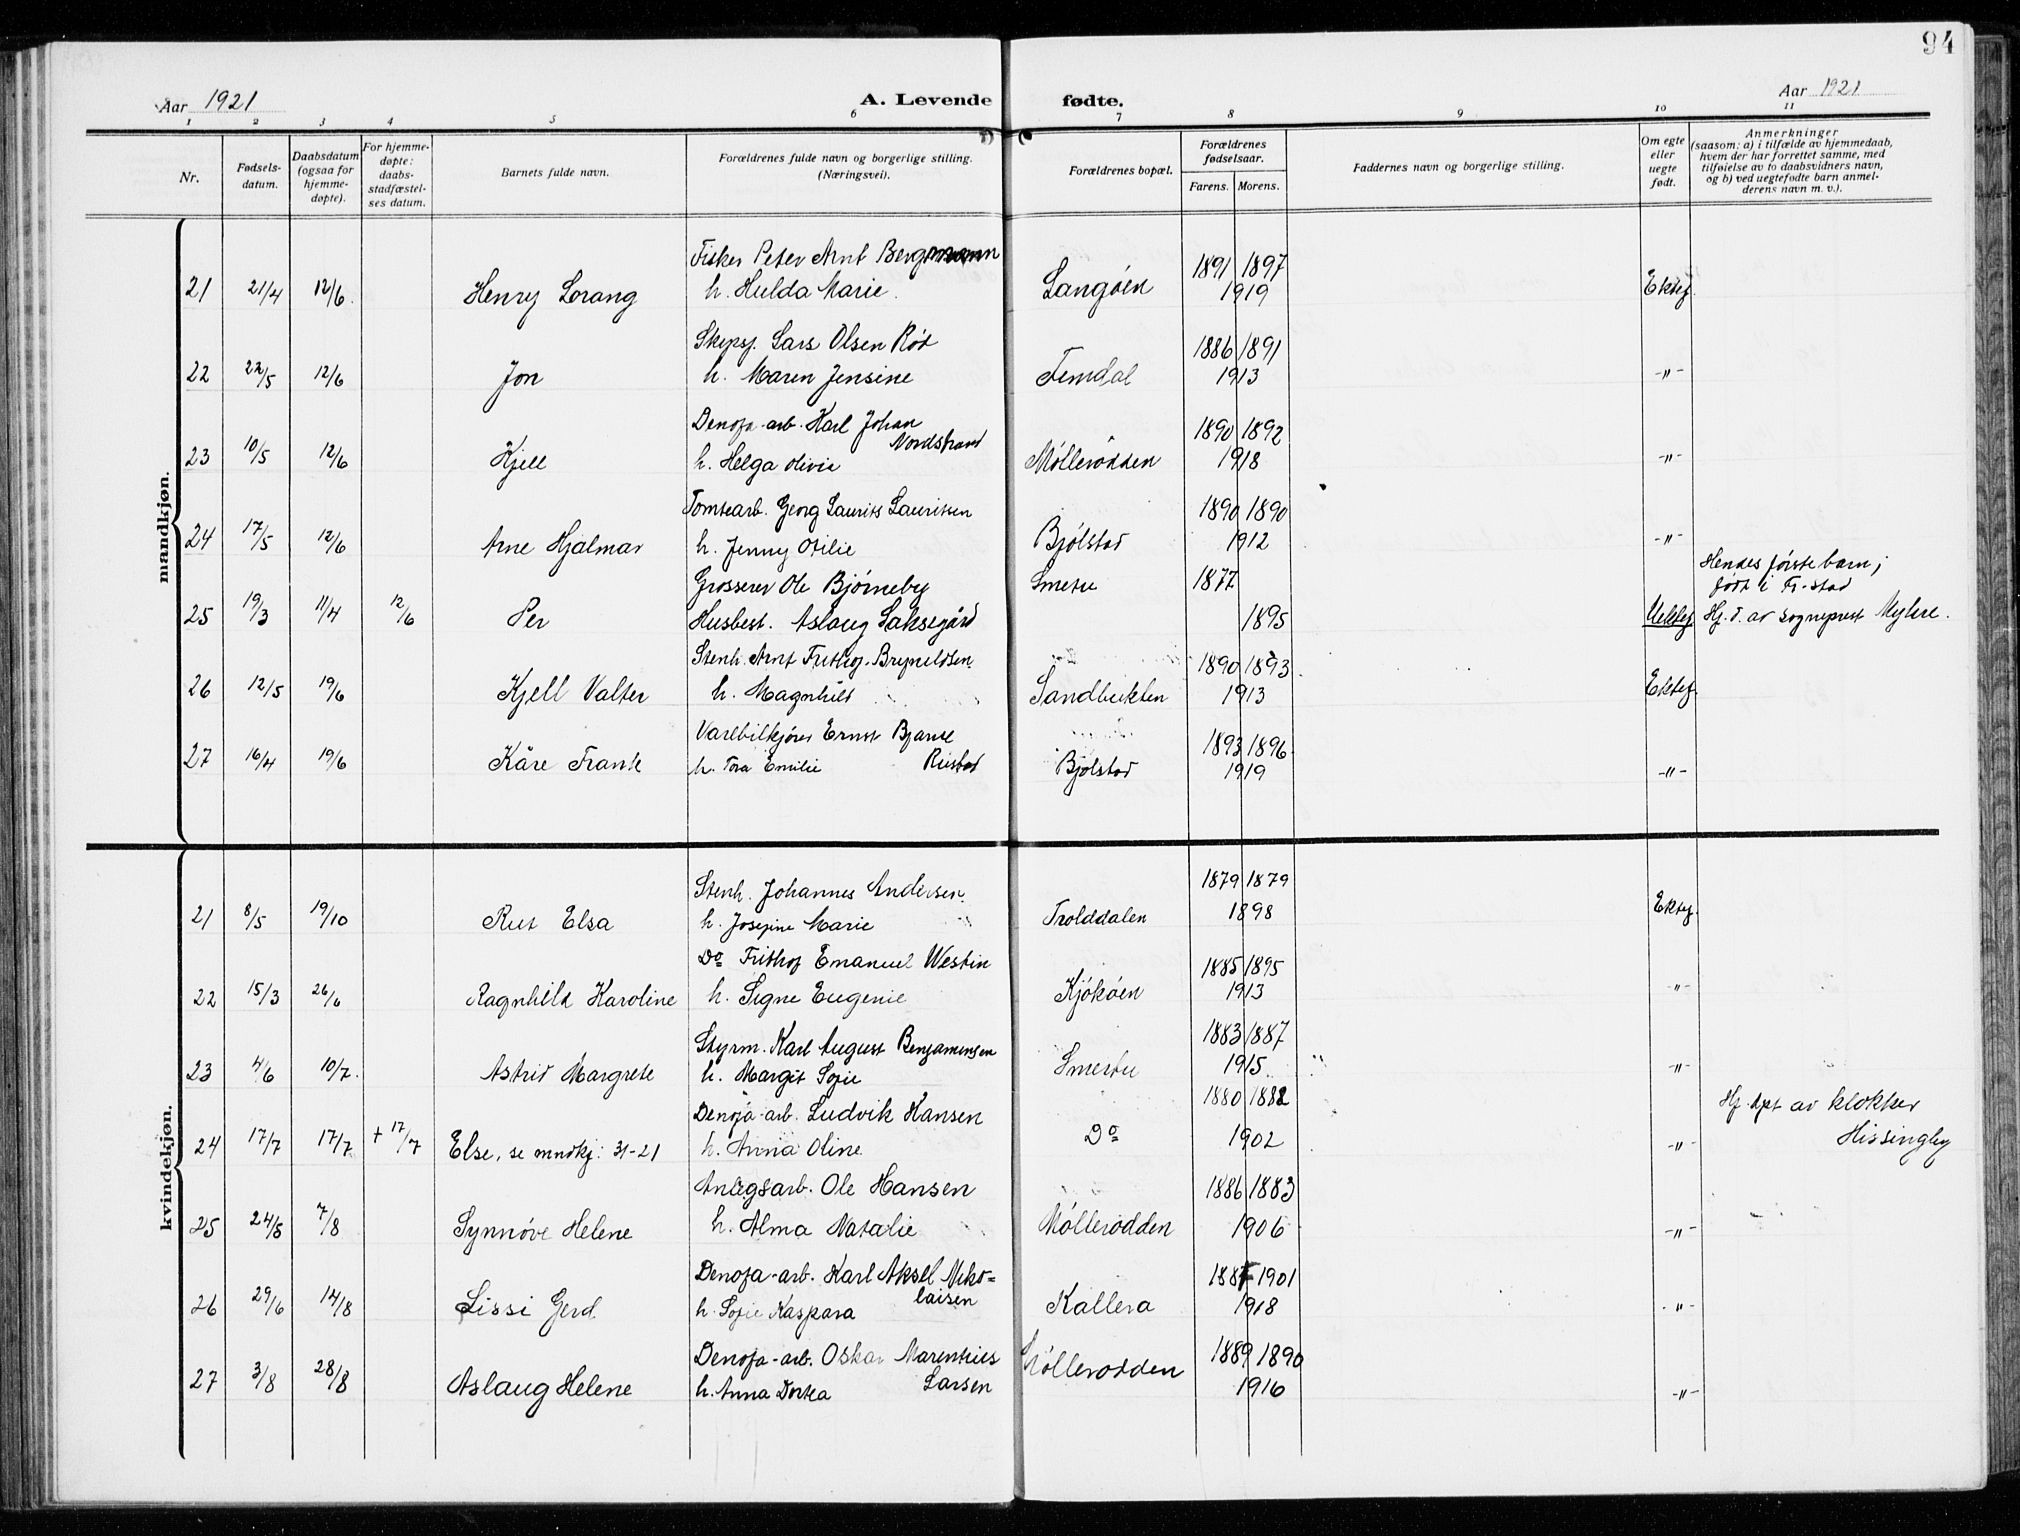 94
Aar 1921
A. Levende fødte.
Aar 1921
1 2 3 4 5 6 7 8 9 10 11
Nr.
Fødsels-
datum.
Daabsdatum
(ogsaa for
hjemme-
døpte).
For hjemme-
døpte:
daabs-
stadfæstel-
ses datum.
Barnets fulde navn.
Forældrenes fulde navn og borgerlige stilling.
(Næringsvei).
Forældrenes bopæl.
Forældrenes
fødselsaar.
Farens. Morens.
Faddernes navn og borgerlige stilling.
Om egte
eller
uegte
født.
Anmerkninger
(saasom: a) i tilfælde av hjemmedaab,
hvem der har forrettet samme, med
tilføielse av to daabsvidners navn,
og b) ved uegtefødte barn anmel-
derens navn m. v.).
mandkjøn.
Fisker Peter Arnt Bergmann 1891 1897
21 21/4 12/6 Henry Lorang h. Hulda Marie Langøen 1919 Ektef.
Skipsf. Lars Olsen Rød 1886 1891
22 22/5 12/6 Jon h. Maren Jensine Femdal 1913 -"-
Denofa-arb. Karl Johan 1890 1892
Nordstrand
23 10/5 12/6 Kjell h. Helga Olivie Møllerodden 1918 -"-
Tomtearb. Georg Laurits Lauritsen 1890 1890
24 17/5 12/6 Arne Hjalmar h. Jenny Otilie Bjølstad 1912 -"-
Hendes første barn;
født i Fr-stad
Grosserer Ole Bjørneby Smertu 1877
25 19/3 11/4 12/6 Per Husbest. Aslaug Laksegård 1895 Uektef. Hj. d. av sogneprest Myhre.
Stenh. Arnt Frithof Brynildsen 1890 1893
26 12/5 19/6 Kjell Valter h. Magnhild Sandbukten 1913 Ektef.
Varebilkjører Ernst Bjarne 1893 1896
Rustad
27 16/4 19/6 Kåre Frank h. Tora Emilie Bjølstad 1919 -"-
kvindekjøn.
Stenh. Johannes Andersen 1879 1879
21 8/5 19/10 Rut Elsa h. Josefine Marie Trolddalen 1898 Ektef.
Do Frithof Emanuel Westin 1885 1895
22 15/3 26/6 Ragnhild Karoline h. Signe Eugenie Kjøkøen 1913 -"-
Styrm. Karl August Benjaminsen 1883 1887
23 4/6 10/7 Astrid Margrete h. Margit Sofie Smertu 1915 -"-
Denofa-arb. Ludvik Hansen 1880 1882 Hj. dpt av klokker
24 17/7 17/7 + 17/7 Else, se mndkj: 31-21 h. Anna Oline Do 1902 -"- Hissingby
Anlegsarb. Ole Hansen 1886 1883
25 24/5 7/8 Synnøve Helene h. Alma Natalie Møllerodden 1906 -"-
Denofa-arb. Karl Aksel Niko= 1901
laisen
26 29/6 14/8 Lissi Gerd h. Sofie Kaspara Kallera 1918 -"-
Denofa-arb. Oskar Marentius 1889 1890
Larsen
27 3/8 28/8 Aslaug Helene h. Anna Dortea Møllerodden 1916 -"-